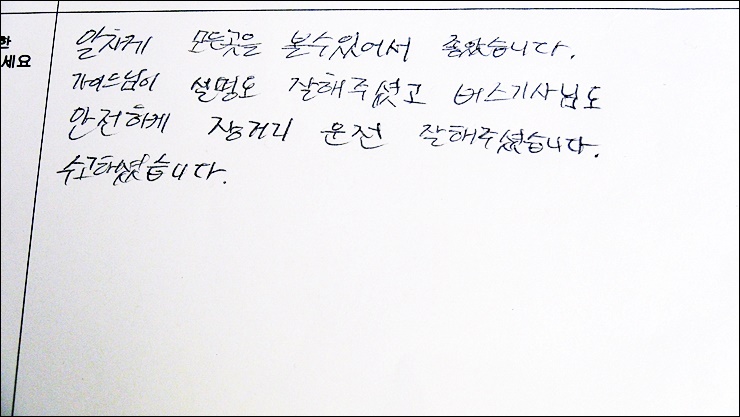 한
세요
알차게 모든곳을 볼수있어서 좋았습니다.
가이드님이 설명도 잘해주셨고 버스기사님도
안전하게 장거리 운전 잘해주셨습니다.
수고하셨습니다.